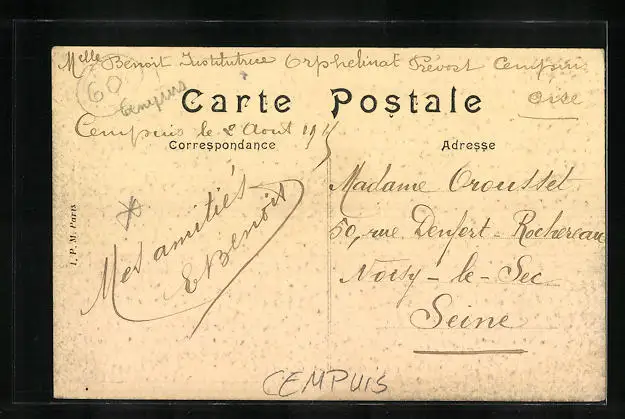 Melle Benoit Institutrice Orphelinat Prévost Cempuis
Oise
60
Cempuis
Carte Postale
Cempuis le 2 Août 19
Correspondance
Adresse
Mes amitiés
EBenoit
Madame Crousset
50, rue Denfert-Rochereau
Noisy-le-Sec
Seine
I. P. M. Paris
CEMPUIS